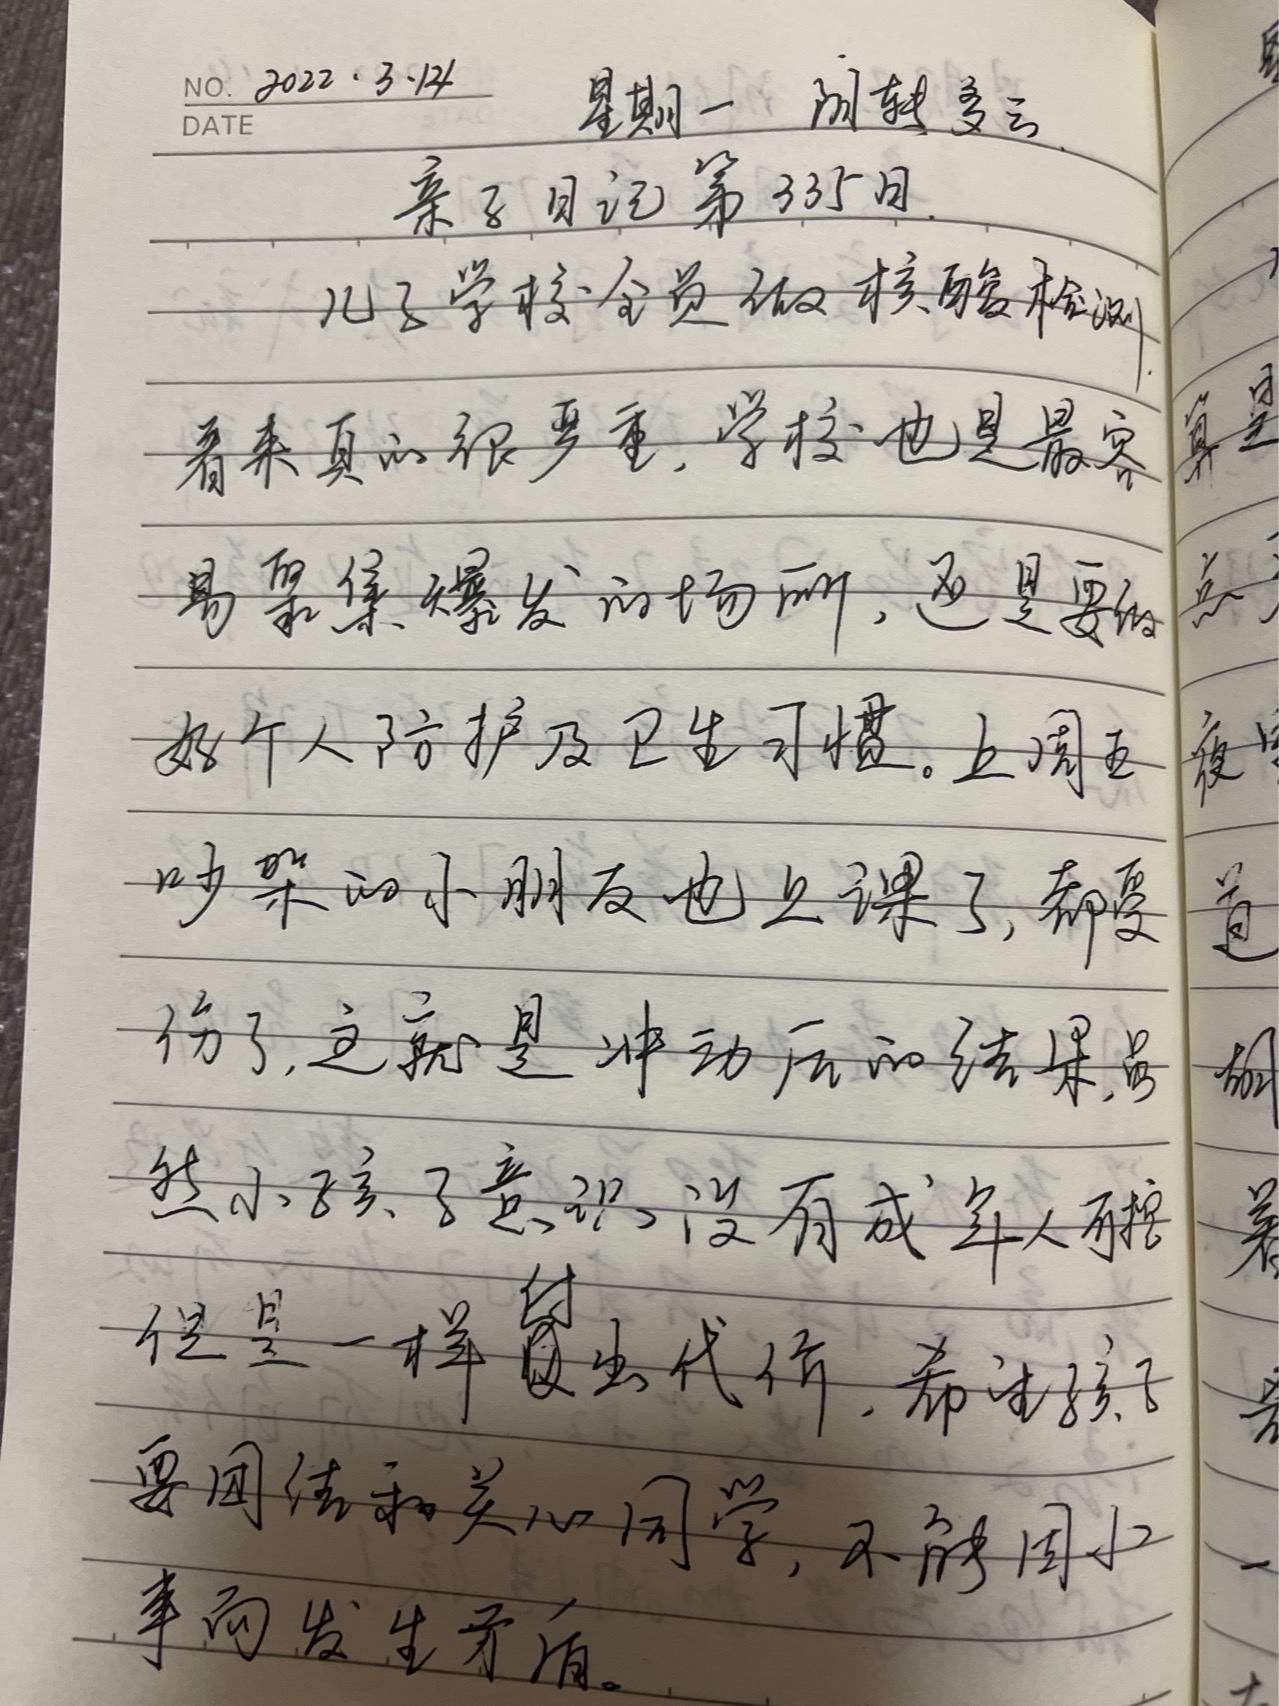 NO. 2022.3.14
DATE
星期一 阴转多云
亲子日记第335日.
儿子学校全员做核酸检测.
看来真的很严重,学校也是最容
易聚集爆发的场所,还是要做
好个人防护及卫生习惯。上周五
吵架的小朋友也上课了,都受
伤了,这就是冲动后的结果,虽
然小孩子意识没有成年人可控
但是一样付出代价,希望孩子
要团结和关心同学,不能因小
事而发生矛盾。